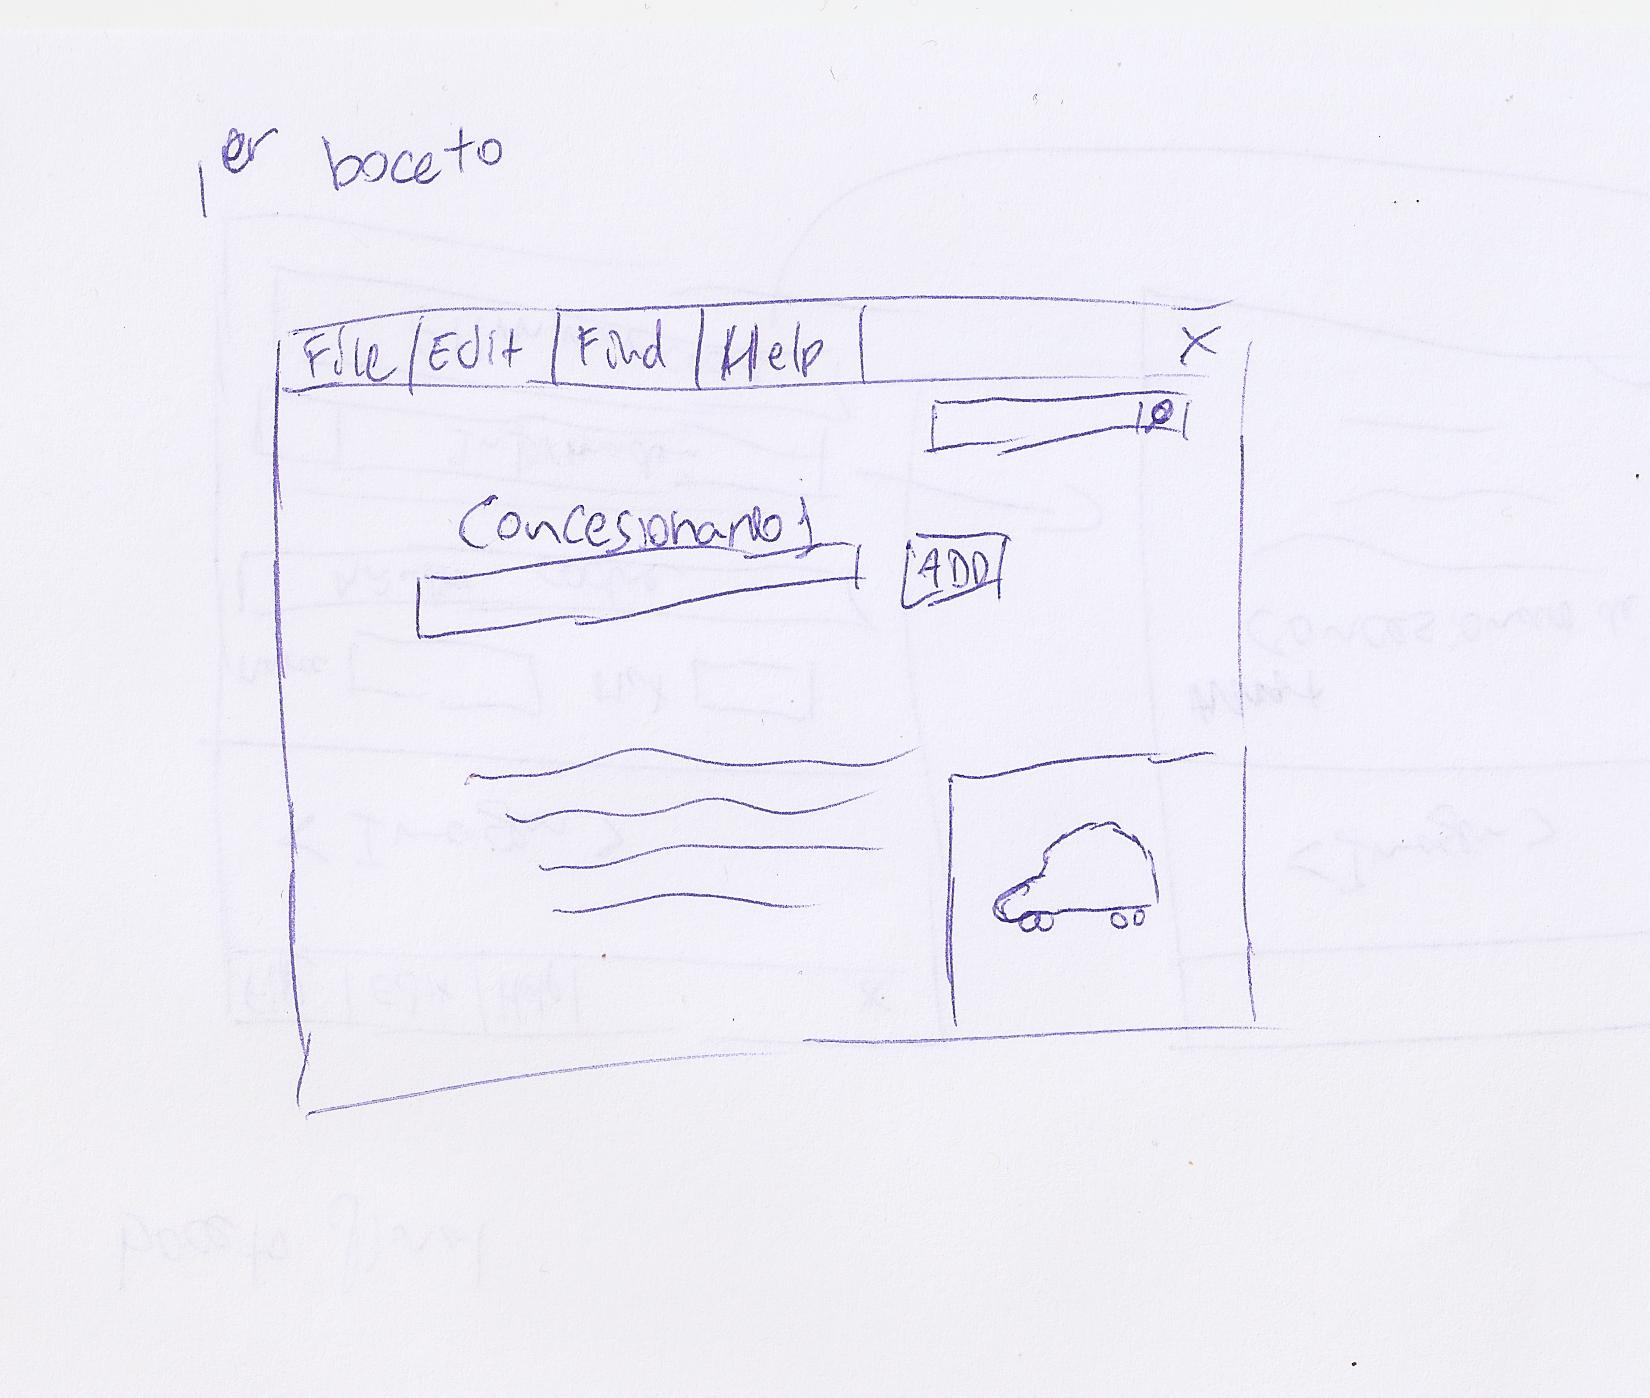 1er boceto
File Edit Find Help X
Concesionario 1
ADD